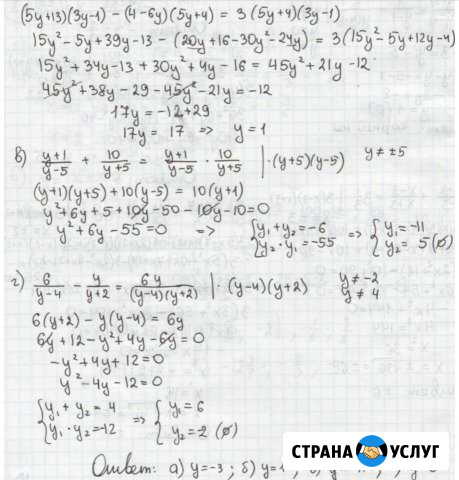 (5y+13)(3y-1) - (4-6y)(5y+4) = 3(5y+4)(3y-1)
15y²-5y+39y-13 - (20y+16-30y²-24y) = 3(15y²-5y+12y-4)
15y²+34y-13+30y²+4y-16 = 45y²+21y-12
45y²+38y-29-45y²-21y=-12
17y=-12+29
17y = 17 => y=1
в) (y+1)/(y-5) + 10/(y+5) = (y+1)/(y-5) · 10/(y+5) | ·(y+5)(y-5) y≠±5
(y+1)(y+5)+10(y-5) = 10(y+1)
y²+6y+5+10y-50-10y-10=0
y²+6y-55=0 => { y₁+y₂=-6 => { y₁=-11
y₂·y₁=-55 y₂= 5(∅)
г) 6/(y-4) - y/(y+2) = 6y/((y-4)(y+2)) | ·(y-4)(y+2) y≠-2
y≠4
6(y+2)-y(y-4)=6y
6y+12-y²+4y-6y=0
-y²+4y+12=0
y²-4y-12=0
{ y₁+y₂=4 => { y₁=6
y₁·y₂=-12 y₂=-2 (∅)
Ответ: а) y=-3; б) y=1
СТРАНА УСЛУГ